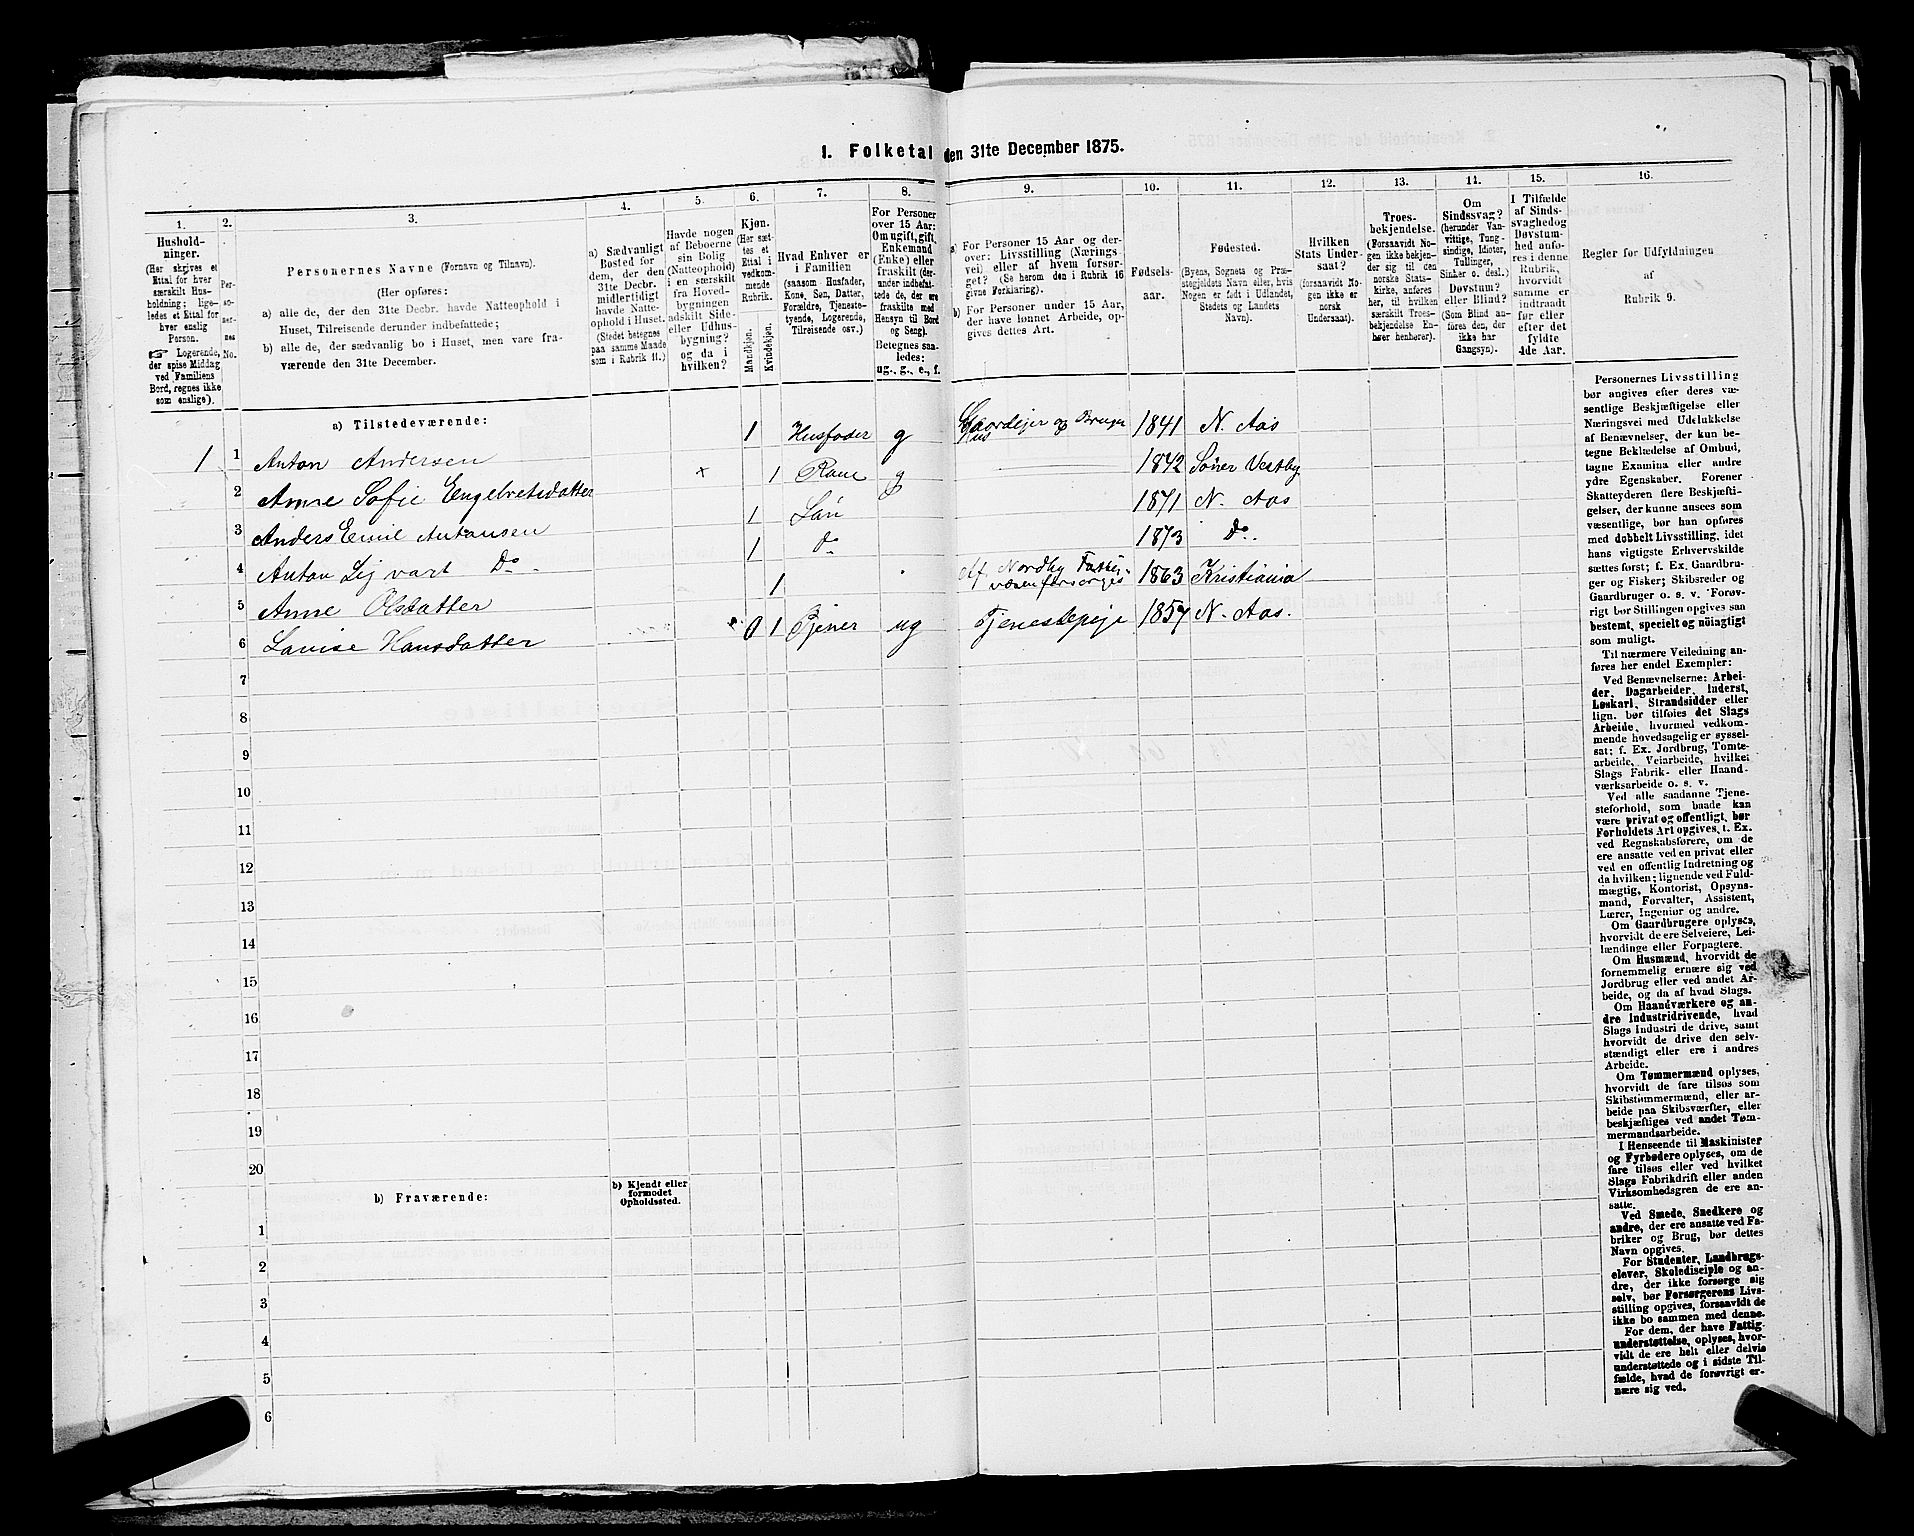 I. Folketal den 31te December 1875.
1.
2.
3.
4.
5.
6.
7.
8.
9.
10.
11.
12.
13.
14.
15.
16.
Hushold-
ninger.
(Her skrives et
Ettal for hver
særskilt Hus-
holdning; lige-
ledes et Ettal for
hver enslig
Person.
☞ Logerende,
der spise Middag
ved Familiens
Bord, regnes ikke
som enslige).
Per-
so-
ner-
nes
No.
Personernes Navne (Fornavn og Tilnavn).
(Her opføres:
a) alle de, der den 31te Decbr. havde Natteophold i
Huset, Tilreisende derunder indbefattede;
b) alle de, der sædvanlig bo i Huset, men vare fra-
værende den 31te December.
a) Sædvanligt
Bosted for
dem, der den
31te Decbr.
midlertidigt
havde Natte-
ophold i Huset.
(Stedet betegnes
paa samme Maade
som i Rubrik 11.)
Havde nogen
af Beboerne
sin Bolig
(Natteophold)
i en særskilt
fra Hoved-
bygningen
adskilt Side-
eller Udhus-
bygning?
og da i
hvilken?
Kjøn.
(Her sæt-
tes et
Ettal i
vedkom-
mende
Rubrik.
Mandkjøn.
Kvindekjøn.
Hvad Enhver er
i Familien
(saasom Husfader,
Kone, Søn, Datter,
Forældre, Tjeneste-
tyende, Logerende,
Tilreisende osv.)
For Personer
over 15 Aar:
Om ugift, gift,
Enkemand
(Enke) eller
fraskilt (der-
under indbefat-
tede de, der ere
fraskilte med
Hensyn til Bord
og Seng).
Betegnes saa-
ledes:
ug., g., e., f.
a) For Personer 15 Aar og der-
over: Livsstilling (Nærings-
vei) eller af hvem forsør-
get? (Se herom den i Rubrik 16
givne Forklaring).
b) For Personer under 15 Aar,
der have lønnet Arbeide, op-
gives dettes Art.
Fødsels-
aar.
Fødested.
(Byens, Sognets og Præ-
stegjeldets Navn eller, hvis
Nogen er født i Udlandet,
Stedets og Landets
Navn).
Hvilken
Stats Under-
saat?
(forsaavidt No-
gen ikke er
norsk
Undersaat).
Troes-
bekjendelse.
(Forsaavidt No-
gen ikke bekjen-
der sig til den
norske Stats-
kirke, anføres
her, til hvilken
særskilt Troes-
bekjendelse En-
hver henhører).
Om
Sindssvag?
(herunder Van-
vittige, Tung-
sindige, Idioter,
Tullinger,
Sinker o. desl.)
Døvstum?
eller Blind?
(Som Blind an-
føres den, der
ikke har
Gangsyn).
I Tilfælde
af Sinds-
svaghed og
Døvstum-
hed anfø-
res i denne
Rubrik,
hvorvidt
samme er
indtraadt
før eller
efter det
fyldte
4de Aar.
Regler for Udfyldningen
af
Rubrik 9.
a) Tilstedeværende:
1 1 Anton Andersen 1 Husfader g Gaardejer og Bruger
Hus 1841 N. Aas
2 Anne Sofie Engebretsdatter × 1 Kone g 1842 Soner Vestby
3 Anders Emil Antonsen 1 Søn 1871 N. Aas
4 Anton Sigvart Do. 1 do 1873 Do.
5 Anne Olsdatter 1 Af Nordby Fattig-
væsen forsørges 1863 Kristiania
6 Lovise Hansdatter 0 1 Tjener ug Tjenestepige 1857 N. Aas.
7
8
9
10
11
12
13
14
15
16
17
18
19
20
b) Fraværende:
b) Kjendt eller
formodet
Opholdssted.
1
2
3
4
5
6
Personernes Livsstilling
bør angives efter deres væ-
sentlige Beskjæftigelse eller
Næringsvei med Udelukkelse
af Benævnelser, der kun be-
tegne Beklædelse af Ombud,
tagne Examina eller andre
ydre Egenskaber. Forener
Skatteyderen flere Beskjæfti-
gelser, der kunne ansees som
væsentlige, bør han opføres
med dobbelt Livsstilling, idet
hans vigtigste Erhvervskilde
sættes først; f. Ex. Gaardbru-
ger og Fisker; Skibsreder og
Gaardbruger o. s. v. Forøv-
rigt bør Stillingen opgives saa
bestemt, specielt og nøiagtigt
som muligt.
Til nærmere Veiledning an-
føres her endel Exempler:
Ved Benævnelserne: Arbei-
der, Dagarbeider, Inderst,
Løskarl, Strandsidder eller
lign. bør tilføies det Slags
Arbeide, hvormed vedkom-
mende hovedsagelig er syssel-
sat; f. Ex. Jordbrug, Tomte-
arbeide, Veiarbeide, hvilket
Slags Fabrik- eller Haand-
værksarbeide o. s. v.
Ved alle saadanne Tjene-
steforhold, som baade kan
være privat og offentligt, bør
Forholdets Art opgives, f. Ex.
ved Regnskabsførere, om de
ere ansatte ved en privat eller
ved en offentlig Indretning og
da hvilken; lignende ved Fuld-
mægtig, Kontorist, Opsyns-
mand, Forvalter, Assistent,
Lærer, Ingeniør og andre.
Om Gaardbrugere oplyses,
hvorvidt de ere Selveiere, Lei-
lændinge eller Forpagtere.
Om Husmænd, hvorvidt de
fornemmelig ernære sig ved
Jordbrug eller ved andet Ar-
beide, og da af hvad Slags.
Om Haandværkere og an-
dre Industridrivende, hvad
Slags Industri de drive, samt
hvorvidt de drive den selv-
stændigt eller ere i andres
Arbeide.
Om Tømmermænd oplyses,
hvorvidt de fare tilsøs som
Skibstømmermænd, eller ar-
beide paa Skibsværfter, eller
beskjæftiges ved andet Tøm-
mermandsarbeide.
I Henseende til Maskinister
og Fyrbødere oplyses, om de
fare tilsøs eller ved hvilket
Slags Fabrikdrift eller anden
Virksomhedsgren de ere an-
satte.
Ved Smede, Snedkere og
andre, der ere ansatte ved Fa-
briker og Brug, bør dettes
Navn opgives.
For Studenter, Landbrugs-
elever, Skoledisciple og an-
dre, der ikke forsørge sig
selv, bør Forsørgerens Livs-
stilling opgives, forsaavidt de
ikke bo sammen med denne.
For dem, der have Fattig-
understøttelse, oplyses, hvor-
vidt de ere helt eller delvis
understøttede og i sidste Til-
fælde, hvad de forøvrigt er-
nære sig ved.